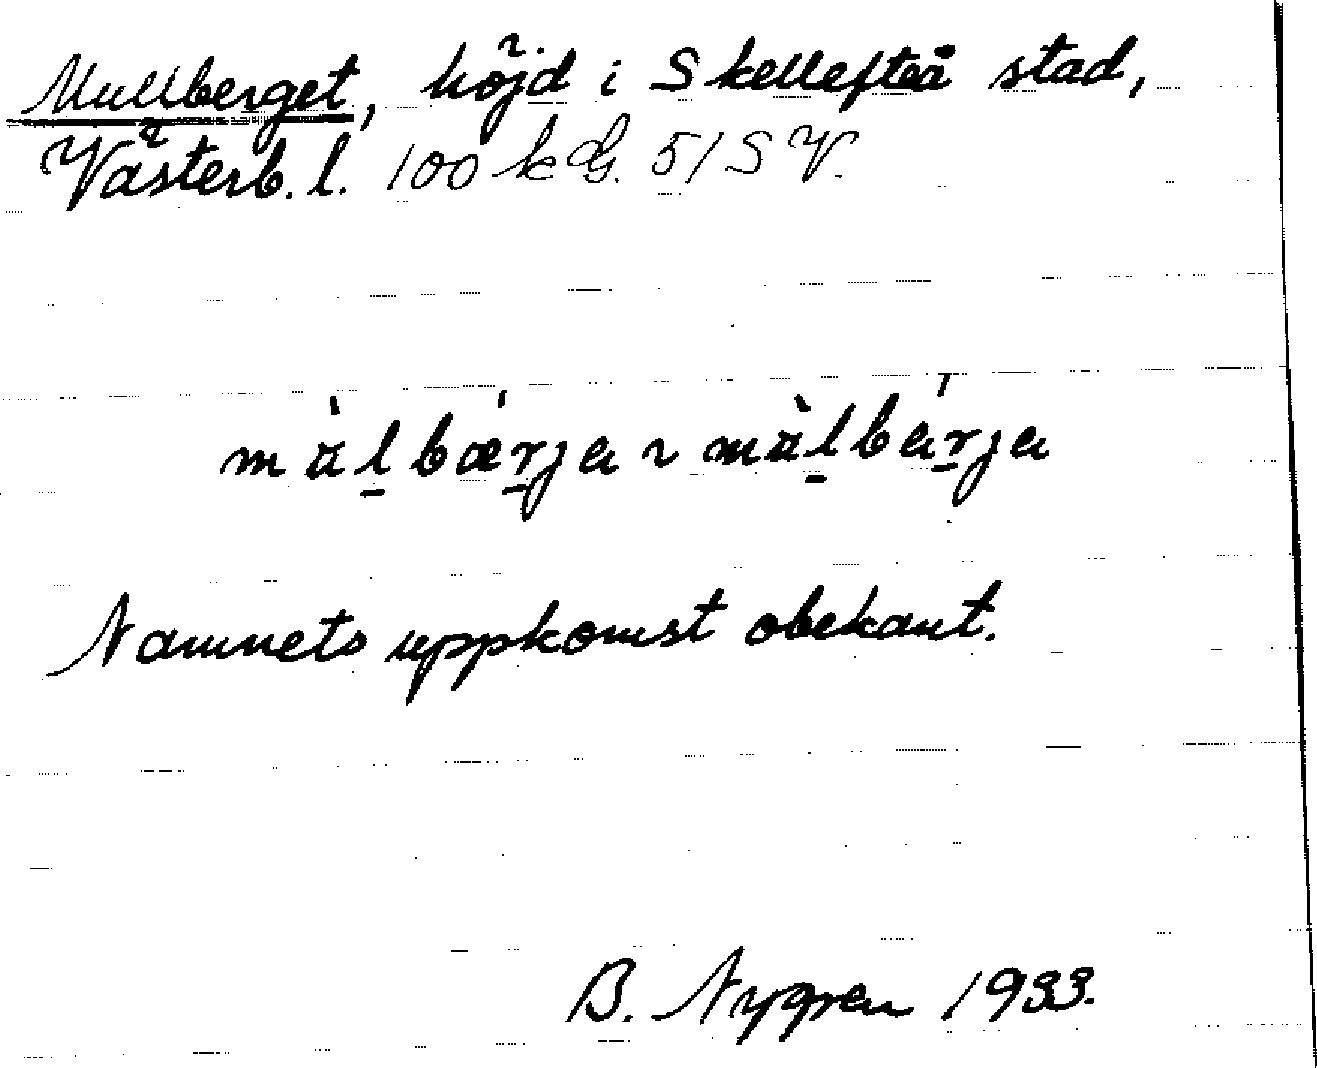 Mullberget, höjd i Skellefteå stad,
Västerb. l. 100 k G. 51 S V.
màl̠bǽr̠ja ~ màl̠bár̠ja
Namnets uppkomst obekant.
B. Nygren 1933.